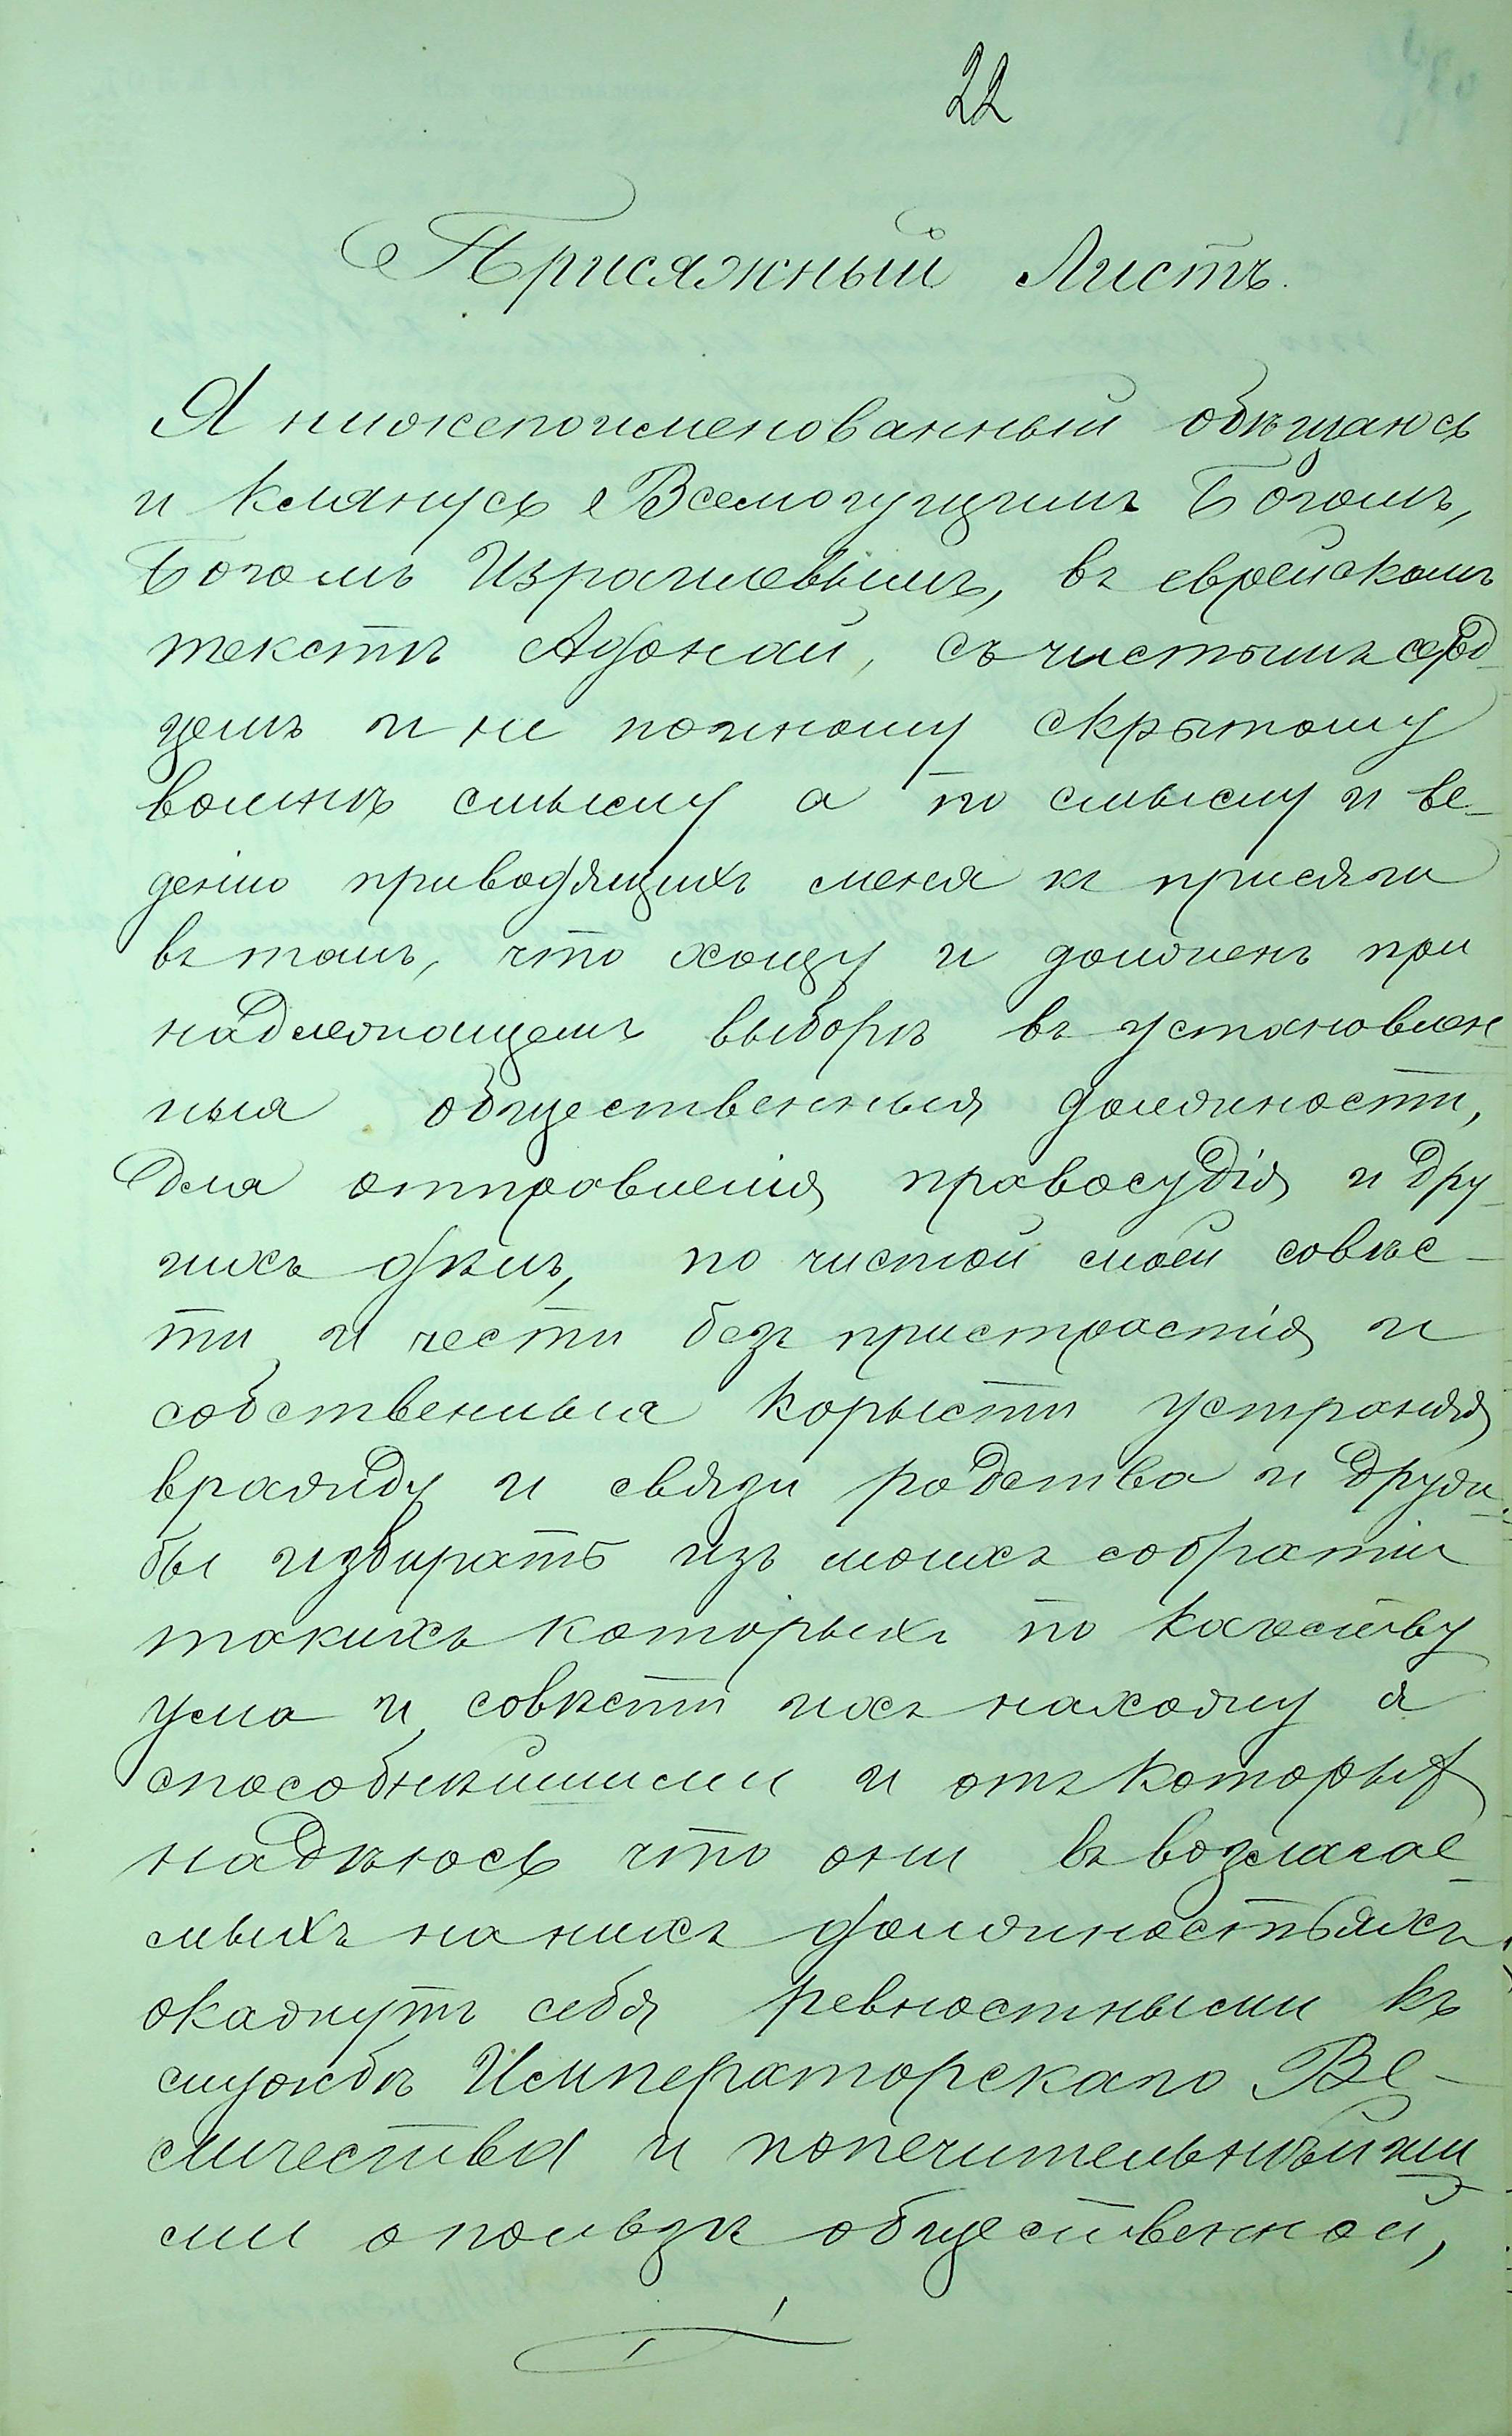 22
Присяжный Листъ.
Я нижепоименованный обѣщаюсь
и клянусь Всемогущимъ Богомъ,
Богомъ Израилевымъ, въ еврейскомъ
текстѣ Адонай, съ чистымъ серд-
цемъ и не по иному скрытому
во мнѣ смыслу а по смыслу и ве-
денію приводящихъ меня къ присяги
въ томъ, что хощу и долженъ при
надлежащемъ выборѣ въ установлен-
ныя общественныя должности,
для отправленія правосудія и дру-
гихъ дѣлъ, по чистой моей совѣс-
ти и чести безъ пристрастія и
собственныя корысти устраняя
вражду и связи родства и друж-
бы избирать изъ моихъ собратіи
такихъ которыхъ по качеству
ума и совѣсти ихъ нахожу я
способнѣйшими и отъ которых
надѣюсь что они въ возлагае-
мыхъ на нихъ должностьяхъ
окажутъ себя ревностными къ
службѣ Императорскаго Ве-
личества и попечительнѣйши
ми о пользѣ общественной,